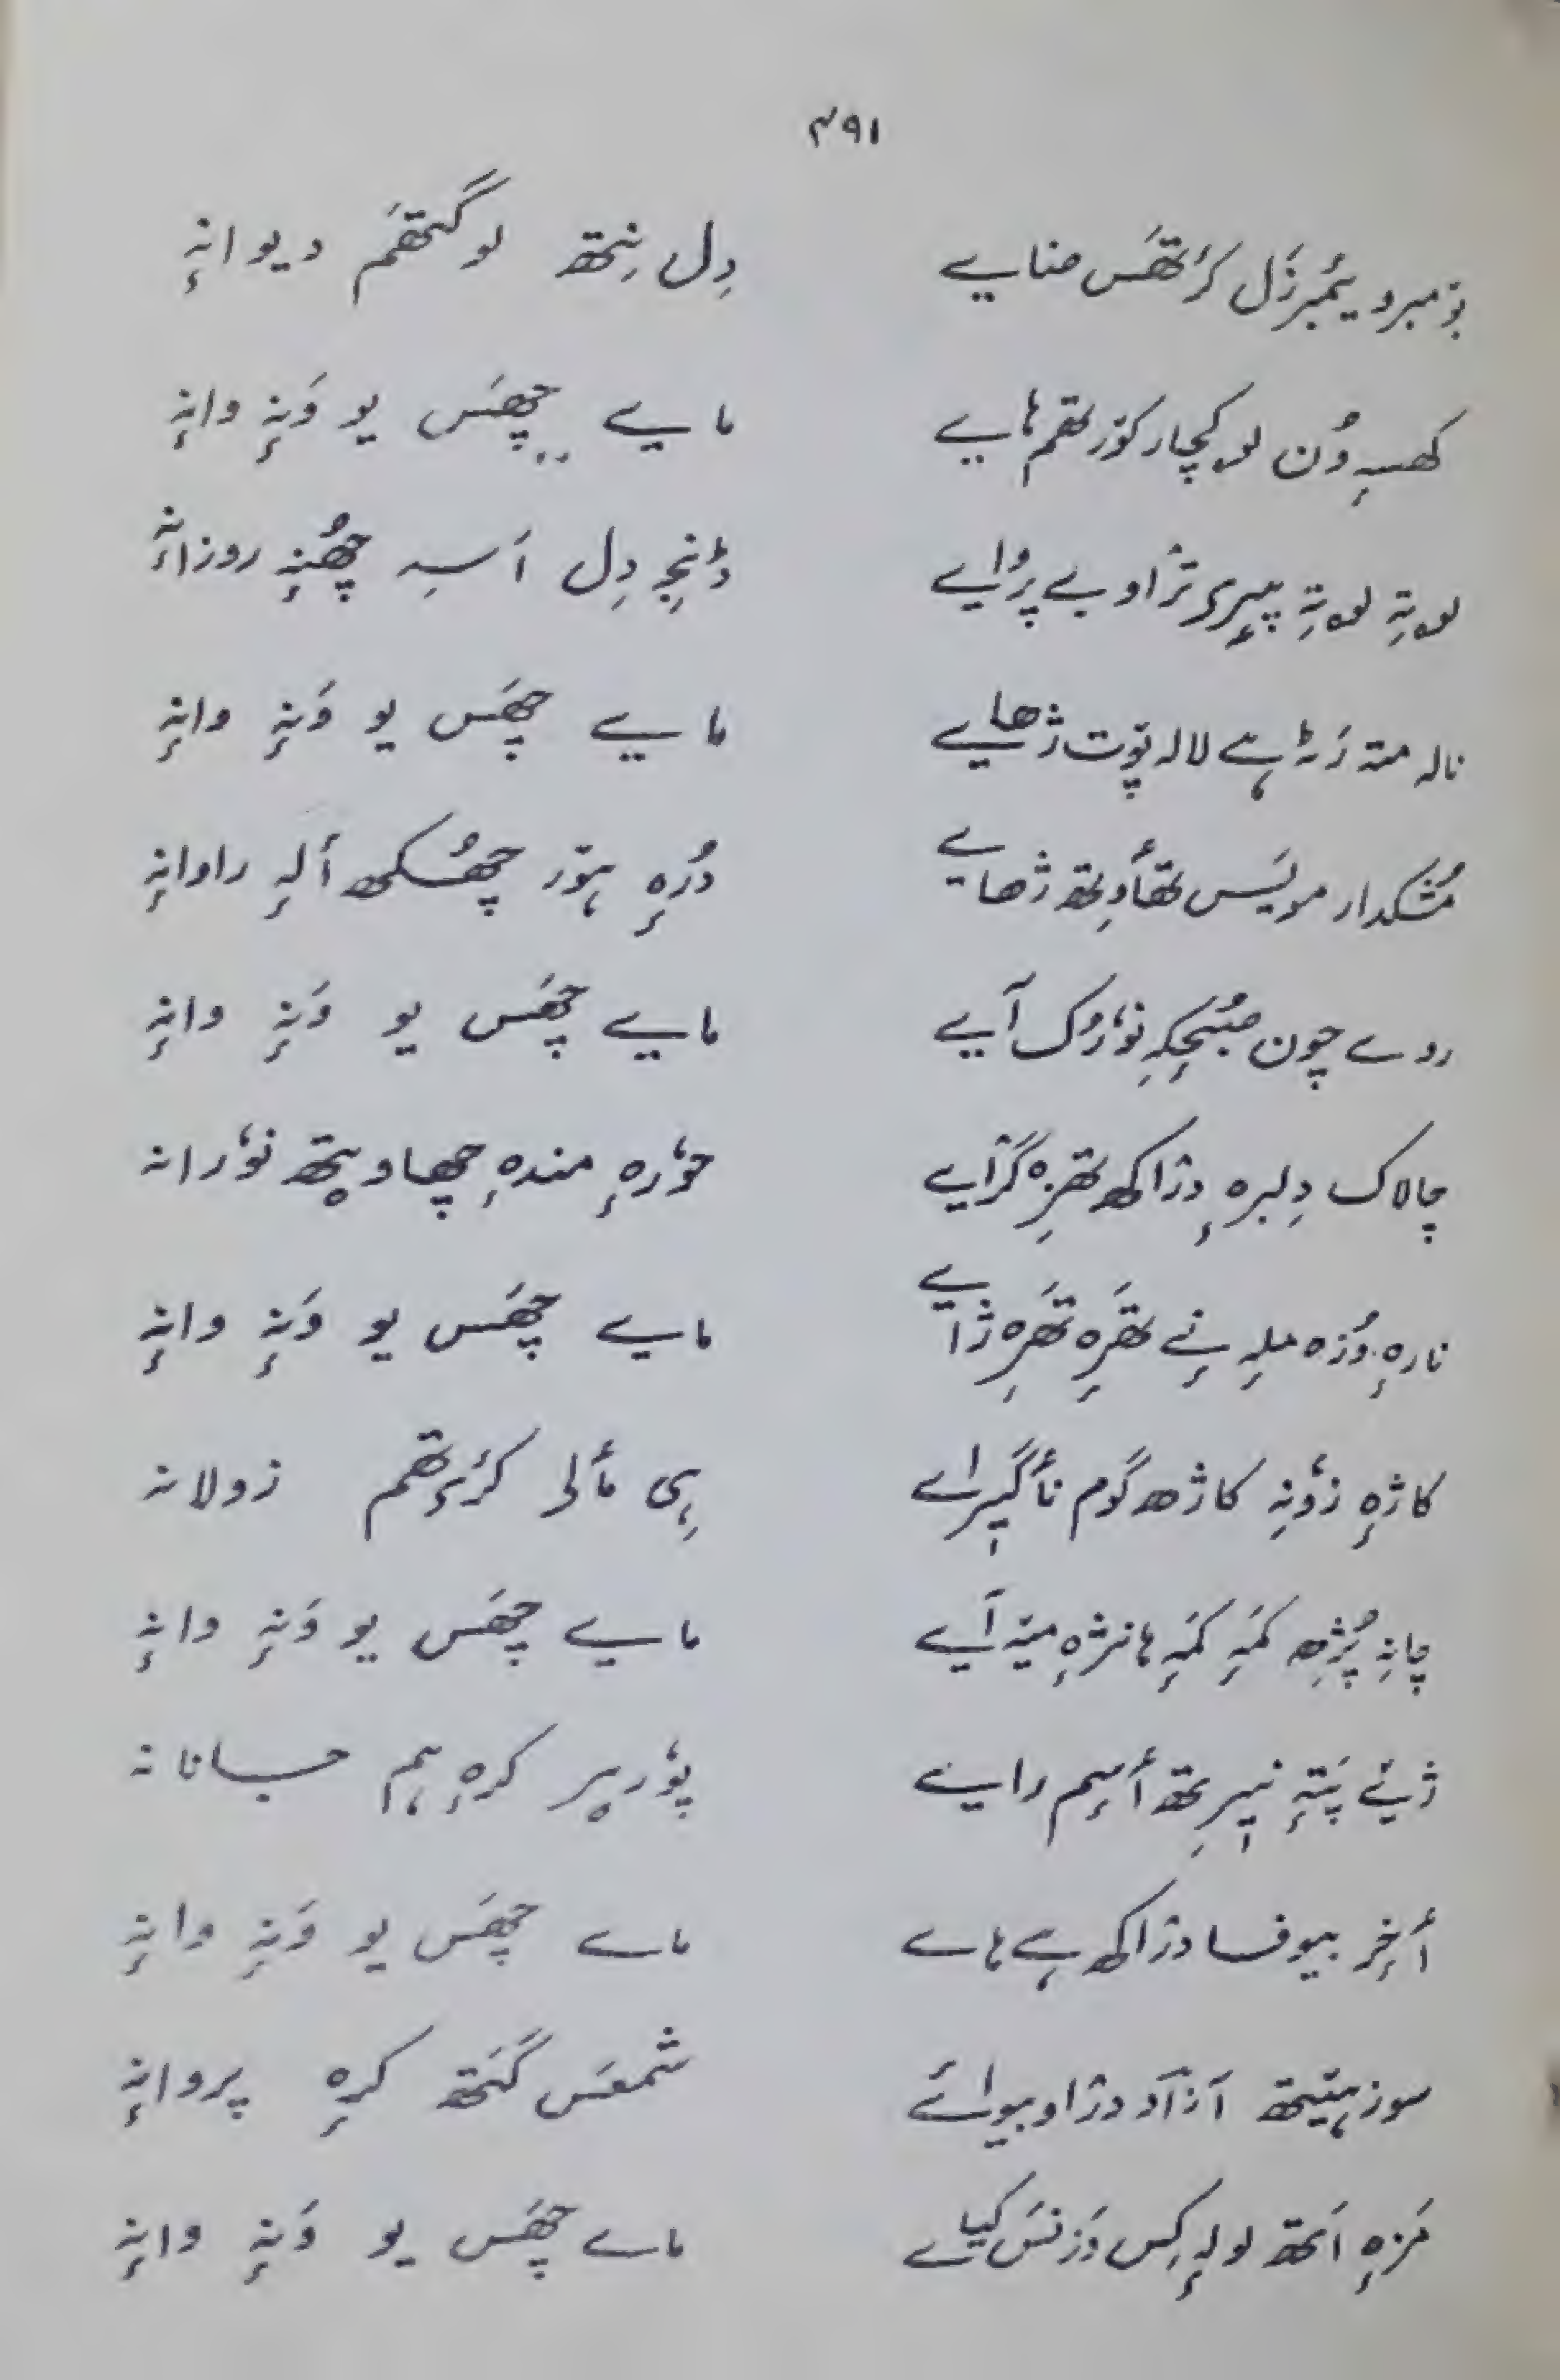 ۴۹۱
بۆمبرو یٔمبرزَل کرٔتھَس ضایے دِل نِتھ لوگتھَم دیوانہٕ
کھسہٕ وُن لۄکچار کوٚرتھم ہایے مایے چھَس یو وَنہٕ وانہٕ
لۄتہِ لۄتہِ پیٖری ترٛاو بے پرٛایے ڈٔنجہِ دِل اَسہِ چھُنہٕ روزانٛہٕ
نالہ متہ رَٹہے لالہ پوٚت ژھایے مایے چھَس یو وَنہٕ وانہٕ
مُشکدار مویَس تھٲوِتھ ژھایے دُرہٕ ہوٚر چھُکھ اَلہٕ راوانہٕ
روے چون صُبحکہِ نوٗرُک آیے مایے چھَس یو وَنہٕ وانہٕ
چالاک دِلبرہٕ دژاکھ تھزِہ گرٛایے حوٗرہٕ مندہٕ چھاو یتھ نوٗرانہ
نارہٕ وُزہ ملہٕ نے تھَرِہ تھَرِہ ژاے مایے چھَس یو وَنہٕ وانہٕ
کاژہٕ زوٗنہِ کاژھ گوم ناگیٖراے ہِی مٲلی کرٔتھم زولانہ
چانہِ پُژھِ کمَہٕ کمَہٕ ہانژہٕ میٚہ آیے مایے چھَس یو وَنہٕ وانہٕ
ژیے پَتہٕ نیٖرِتھ أسِم راینے پوٗرپر کرہٕ ہم حسانانہ
أخِر بیوفا دژاکھ ہے ہاے ماے چھَس یو وَنہٕ وانہٕ
سوز ہیٚتھ آزاد دژاو بیواے شمعس گَتھ کرہٕ پروانہٕ
مَزہٕ اَتھ لولہٕ کِس وَزنَس کیاے ماے چھَس یو وَنہٕ وانہٕ